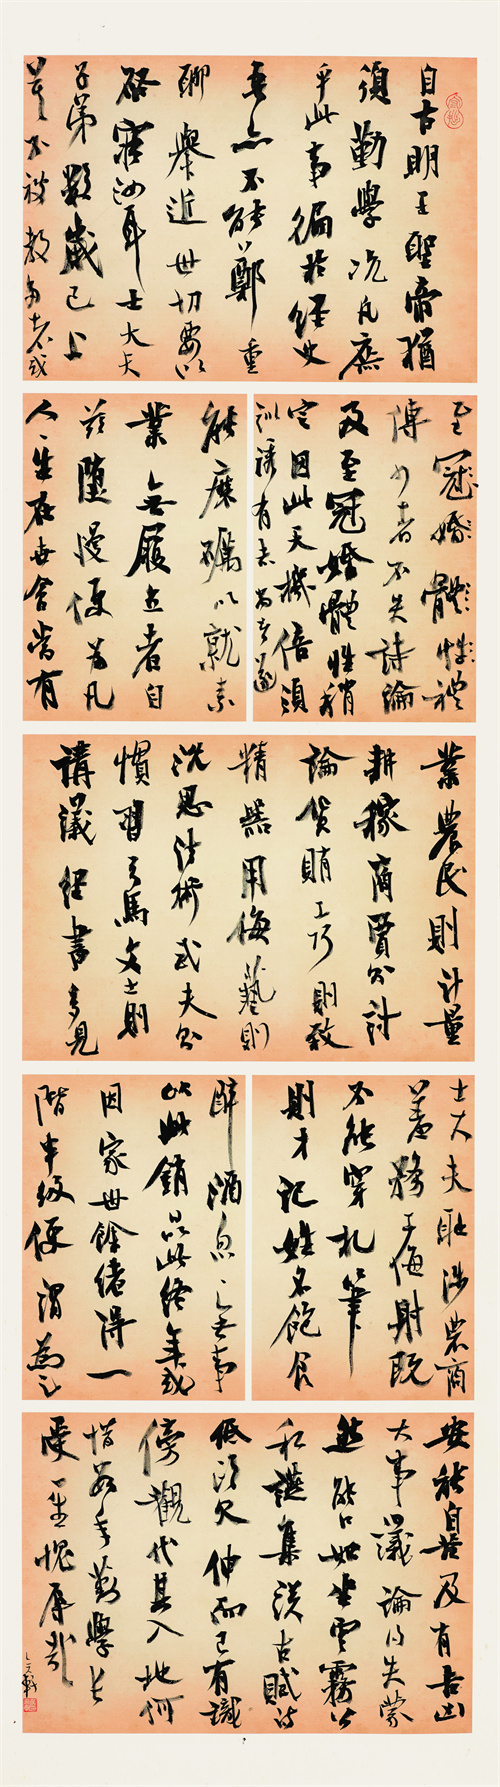 自古明王聖帝猶
須勤學況凡庶
乎此事徧於經史
吾亦不能鄭重
聊舉近世切要以
啓寤汝耳士大夫
子弟數歲已上
莫不被教多者或
至冠婚體性禮
傳少者不失詩論
及至冠婚體性稍
定因此天機倍須
訓誘有志尚者遂
能磨礪以就素
業無履立者自
茲墮慢便為凡
人人生在世會當有
業農民則計量
耕稼商賈則討
論貨賄工巧則致
精器用伎藝則
沈思法術武夫則
慣習弓馬文士則
講議經書多見
士大夫恥涉農商
羞務工伎射既
不能穿札筆
則才記姓名飽食
醉酒忽忽無事
以此銷日以此終年或
因家世餘緒得一
階半級便謂為足
安能自苦及有吉凶
大事議論得失蒙
然張口如坐雲霧公
私讌集談古賦詩
低頭欠伸而已有識
傍觀代其入地何
惜數年勤學長
受一生愧辱哉